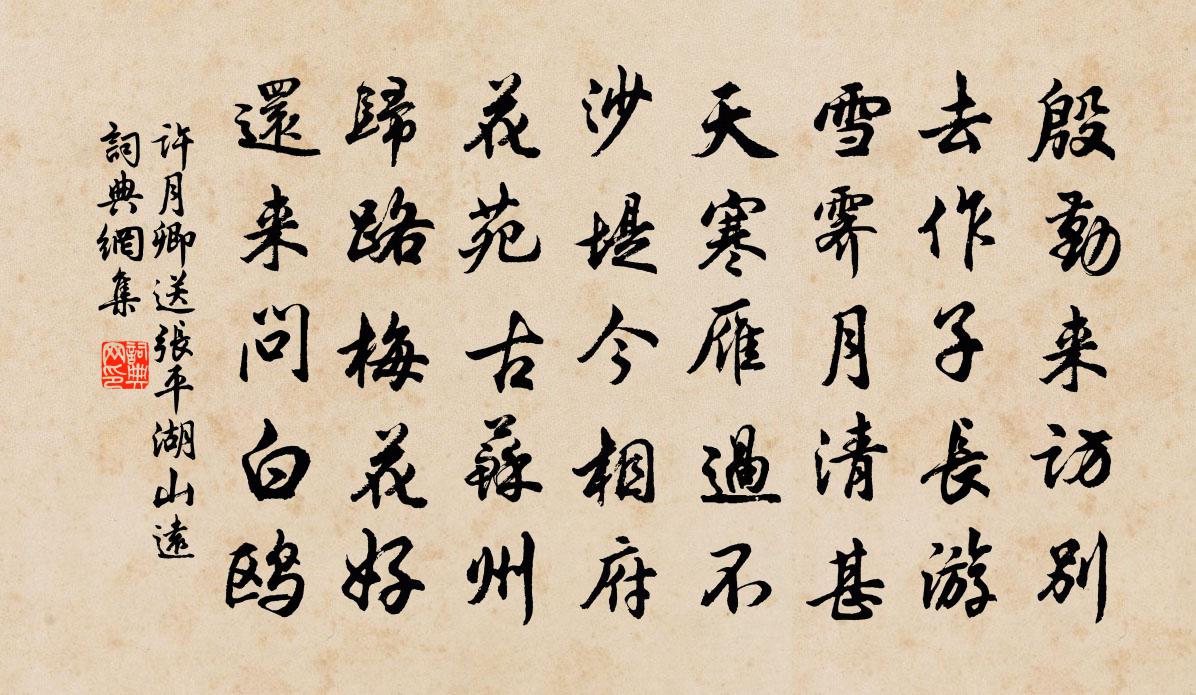 殷勤来访别
去作子長游
雪霽月清甚
天寒雁過不
沙堤今相府
花苑古蘇州
歸路梅花好
還来问白鸥
许月卿送張平湖山遠
詞典網集
詞典网印